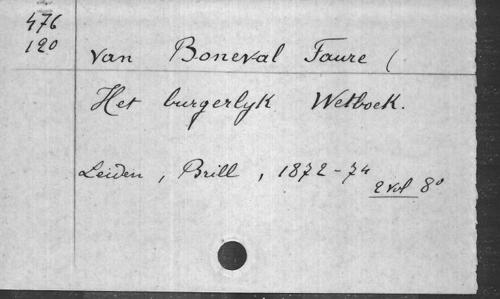 476
120
van Boneval Faure (
Het burgerlyk Wetboek.
Leiden, Brill, 1872-74
2 vol 8°